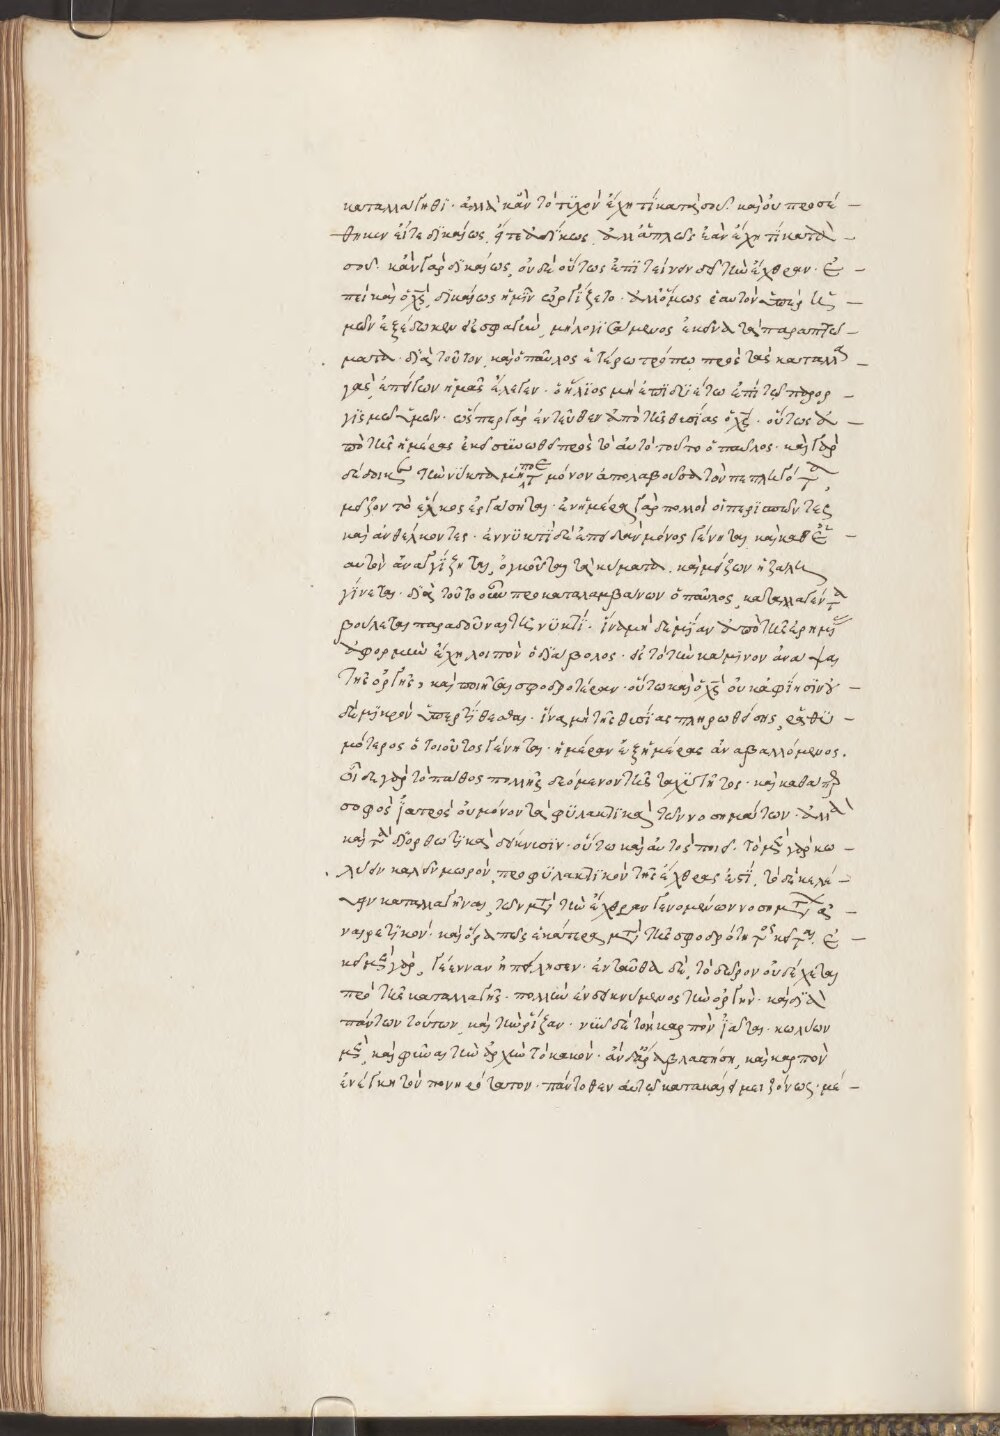 καταλλάγηθι· ἀλλὰ κἂν τὸ τυχὸν ἔχῃ τί κατὰ σοῦ. καὶ οὐ προσέ –
θηκεν εἴτε δικαίως, εἴτε ἀδίκως, ἀλλ' ἁπλῶς ἐὰν ἔχῃ τί κατὰ –
σοῦ. κἂν γὰρ δικαίως, οὐδὲ οὕτως ἐπιτείνειν δεῖ τὴν ἔχθραν· ἐ –
πεὶ καὶ ὁ χς, δικαίως ἡμῖν ὠργίζετο· ἀλλ' ὅμως ἑαυτὸν ὑπὲρ ἡ –
μῶν ἐξέδωκεν εἰς σφαγὴν, μὴ λογισάμενος ἐκεῖνα τὰ παραπτώ –
ματα· διὰ τοῦτον, καὶ ὁ παῦλος ἑτέρω τρόπω πρὸς τὰς καταλλα
γὰς ἐπείγων ἡμᾶς ἔλεγεν· ὁ ἥλιος μὴ ἐπιδυέτω ἐπὶ τῷ παρορ –
γισμῷ ὑμῶν· ὥσπερ γὰρ ἐντεῦθεν ἀπὸ τῆς θυσίας ὁ χς· οὕτως ἀ –
πὸ τῆς ἡμέρας ἐκεῖ συνωθεῖ πρὸς τὸ αὐτὸ τοῦτο ὁ παῦλος· καὶ γὰρ
δέδοικε τὴν νύκτα μήποτε μόνον ἀπολαβοῦσα τὸν πεπληγότα,
μεῖζον τὸ ἕλκος ἐργάσηται· ἐν ἡμέρα γὰρ πολλοὶ οἱ περισπῶντες
καὶ ἀνθέλκοντες· ἐν νυκτὶ δὲ ἐπειδὰν μόνος γένηται καὶ καθ' ἑ –
αυτὸν ἀναλογίζηται, ὀγκοῦται τὰ κύματα, καὶ μείζων ἡ ζάλη
γίνεται· διὰ τοῦτο οὖν προκαταλαμβάνων ὁ παῦλος, καταλλαγέντα
βούλεται παραδοῦναι τῇ νυκτί· ἵνα μηδεμίαν ἀπὸ τῆς ἐρημίας
ἀφορμὴν ἔχῃ λοιπὸν ὁ διάβολος· εἰς τὸ τὴν κάμινον ἀνάψαι
τῆς ὀργῆς, καὶ ποιῆσαι σφοδροτέραν· οὕτω καὶ ὁ χς οὐκ ἀφίησιν οὐ –
δὲ μικρὸν ὑπερτίθεσθαι· ἵνα μὴ τῆς θυσίας πληρωθείσης, ῥαθυ –
μότερος ὁ τοιοῦτος γένηται· ἡμέραν ἐξ ἡμέρας ἀναβαλλόμενος.
οἶδε γὰρ τὸ πάθος πολλῆς δεόμενον τῆς ταχύτητος· καὶ καθάπερ
σοφὸς ἰατρὸς οὐ μόνον τὰ φυλακτικὰ τῶν νοσημάτων· ἀλλὰ
καὶ τὰ διορθωτικὰ δείκνυσιν· οὕτω καὶ αὐτὸς ποιεῖ. τὸ μὲν γὰρ κω –
λύειν καλεῖν μωρὸν, προφυλακτικὸν τῆς ἔχθρας ἐστί, τὸ δὲ κελεύ –
ειν καταλλαγῆναι, τῶν μετὰ τὴν ἔχθραν γενομένων νοσημάτων ἀ –
ναιρετικόν· καὶ ὅρα πῶς ἑκάτερα μετὰ τῆς σφοδρότητος κεῖται. ἐ –
κεῖ μὲν γὰρ, γέενναν ἠπείλησεν· ἐνταῦθα δὲ, τὸ δῶρον οὐ δέχεται
πρὸ τῆς καταλλαγῆς· πολλὴν ἐνδεικνύμενος τὴν ὀργήν· καὶ διὰ
πάντων τούτων, καὶ τὴν ῥίζαν· νῦν δὲ τὸν καρπὸν ἰᾶται· κωλύων
μὲν, καὶ φῦναι τὴν ἀρχὴν τὸ κακόν· ἂν δὲ ἄρα βλαστήση, καὶ καρπὸν
ἐνέγκη τὸν πονηρότατον· πάντοθεν αὐτῷ κατακαίει μειζόνως· μέ –